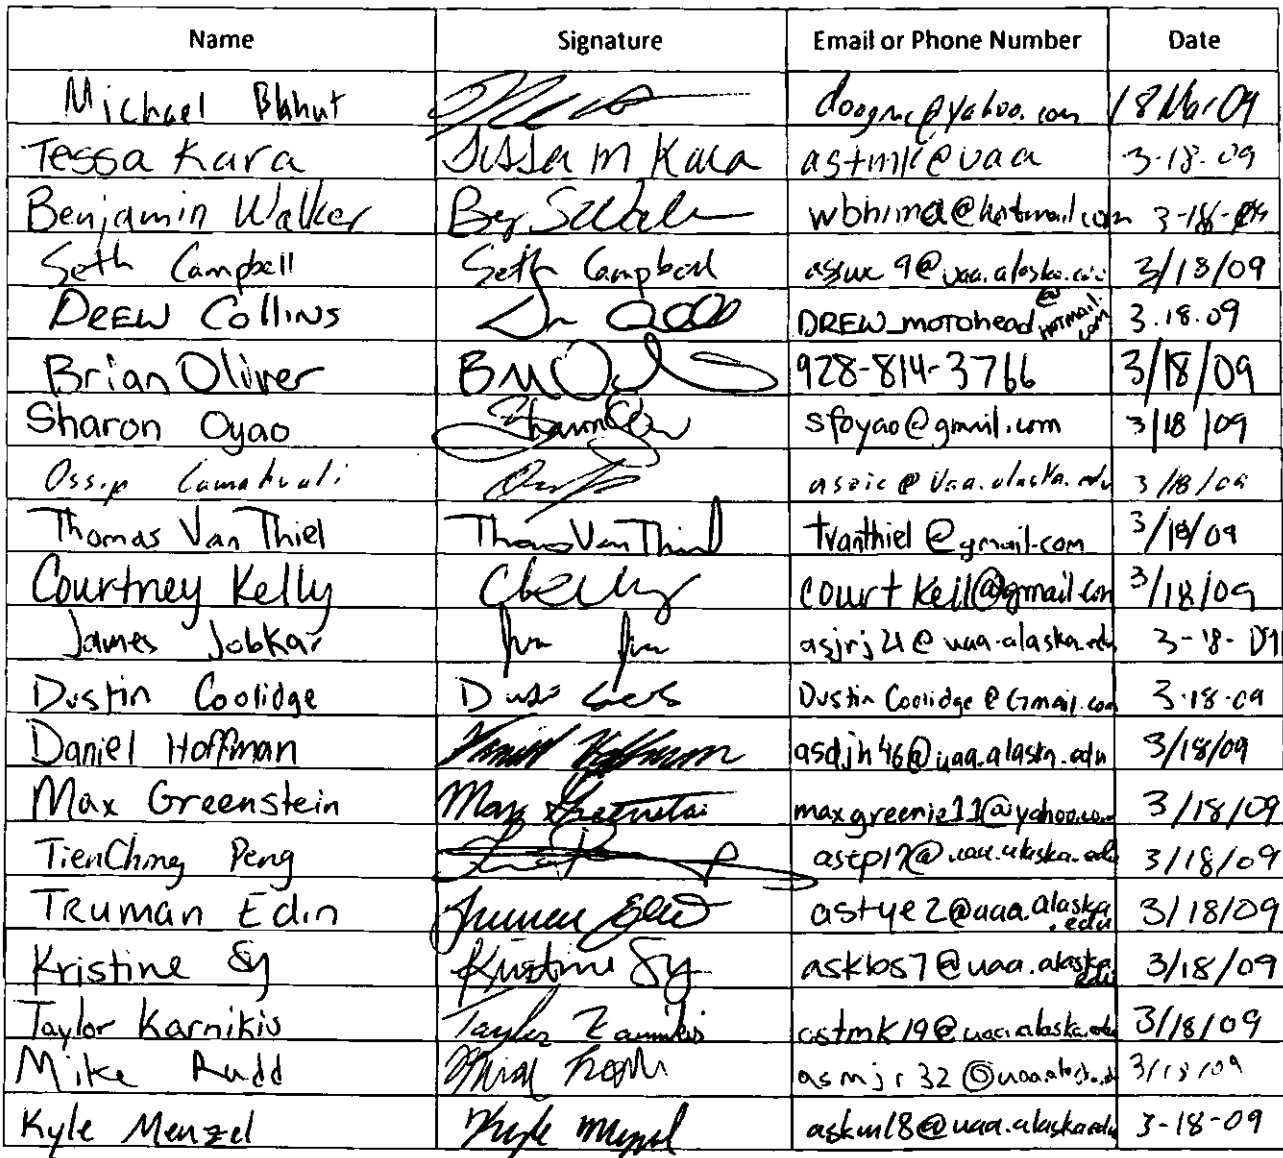 Name Signature Email or Phone Number Date
Michael Blahut doogmc@yahoo.com 18 Mar 09
Tessa Kara Tessa M Kara astmk@uaa 3-18-09
Benjamin Walker wbhima@hotmail.com 3-18-09
Seth Campbell Seth Campbell 9@uaa.alaska.edu 3/18/09
DREW COLLINS DREW_motohead@hotmail.com 3.18.09
Brian Oliver 928-814-3766 3/18/09
Sharon Oyao sfoyao@gmail.com 3/18/09
Ossip asoic@uaa.alaska.edu 3/18/09
Thomas Van Thiel Thomas Van Thiel tvanthiel@gmail.com 3/18/09
Courtney Kelly CKelly courtkell@gmail.com 3/18/09
James Jobkar asjrj21@uaa.alaska.edu 3-18-09
Dustin Coolidge Dustin Coolidge@Gmail.com 3-18-09
Daniel Hoffman Daniel Hoffman asdjh46@uaa.alaska.edu 3/18/09
Max Greenstein Max Greenstein maxgreenie11@yahoo.com 3/18/09
TienChing Peng astp17@uaa.alaska.edu 3/18/09
TRUMAN Edin Truman Edin astye2@uaa.alaska.edu 3/18/09
Kristine Sy Kristine Sy askbs7@uaa.alaska.edu 3/18/09
Taylor Karnikis Taylor Karnikis astmk19@uaa.alaska.edu 3/18/09
Mike Rudd asmjr32@uaa.alaska.edu 3/18/09
Kyle Menzel Kyle Menzel askm18@uaa.alaska.edu 3-18-09